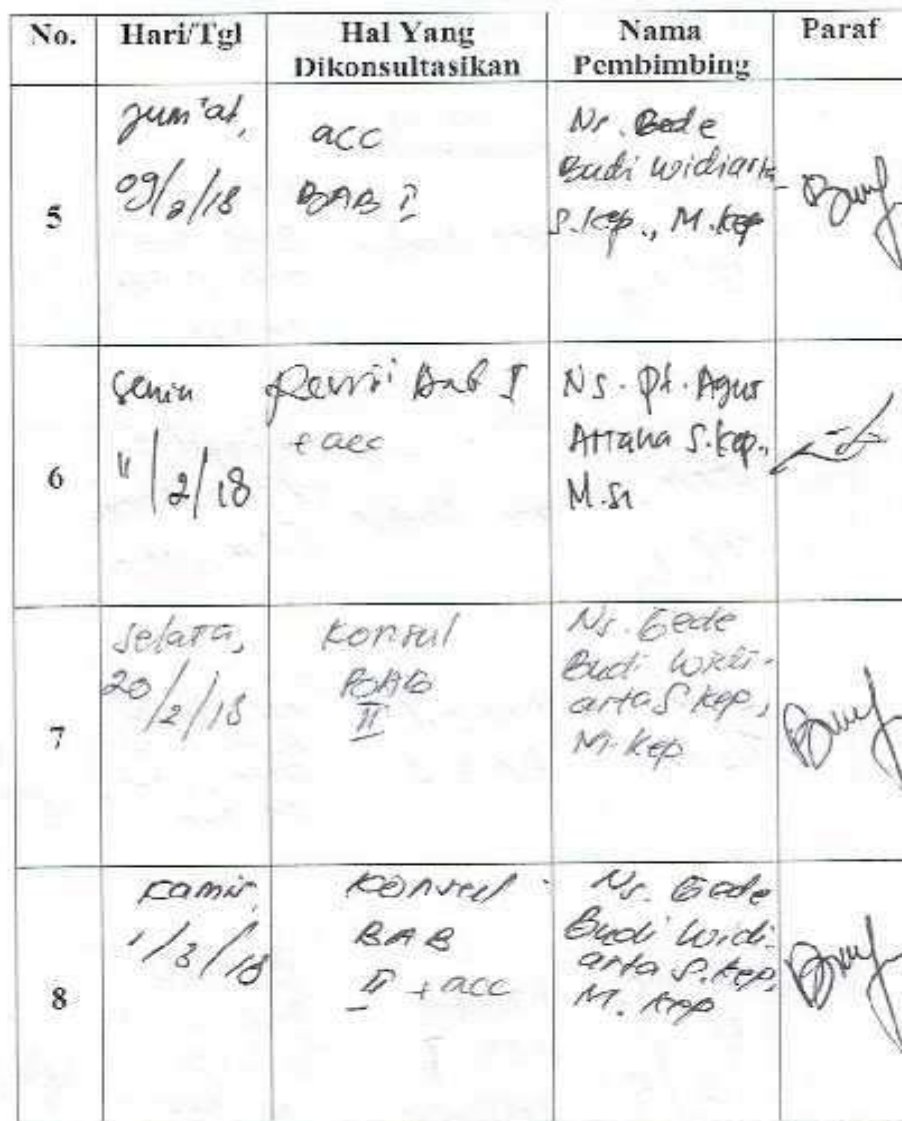 No. Hari/Tgl Hal Yang Dikonsultasikan Nama Pembimbing Paraf
5
Jum'at,
09/2/18
acc
BAB I
Ns. Gede
Budi Widiarta
S.Kep., M.Kep
6
Senin
11/2/18
Revisi Bab I
+ acc
Ns. Pt. Agus
Ariana S.Kep.,
M.Si
7
Selasa,
20/2/18
Konsul
BAB
II
Ns. Gede
Budi Widi-
arta S.Kep.,
M.Kep
8
Kamis,
1/3/18
Konsul
BAB
II + acc
Ns. Gede
Budi Widi-
arta S.Kep,
M. Kep